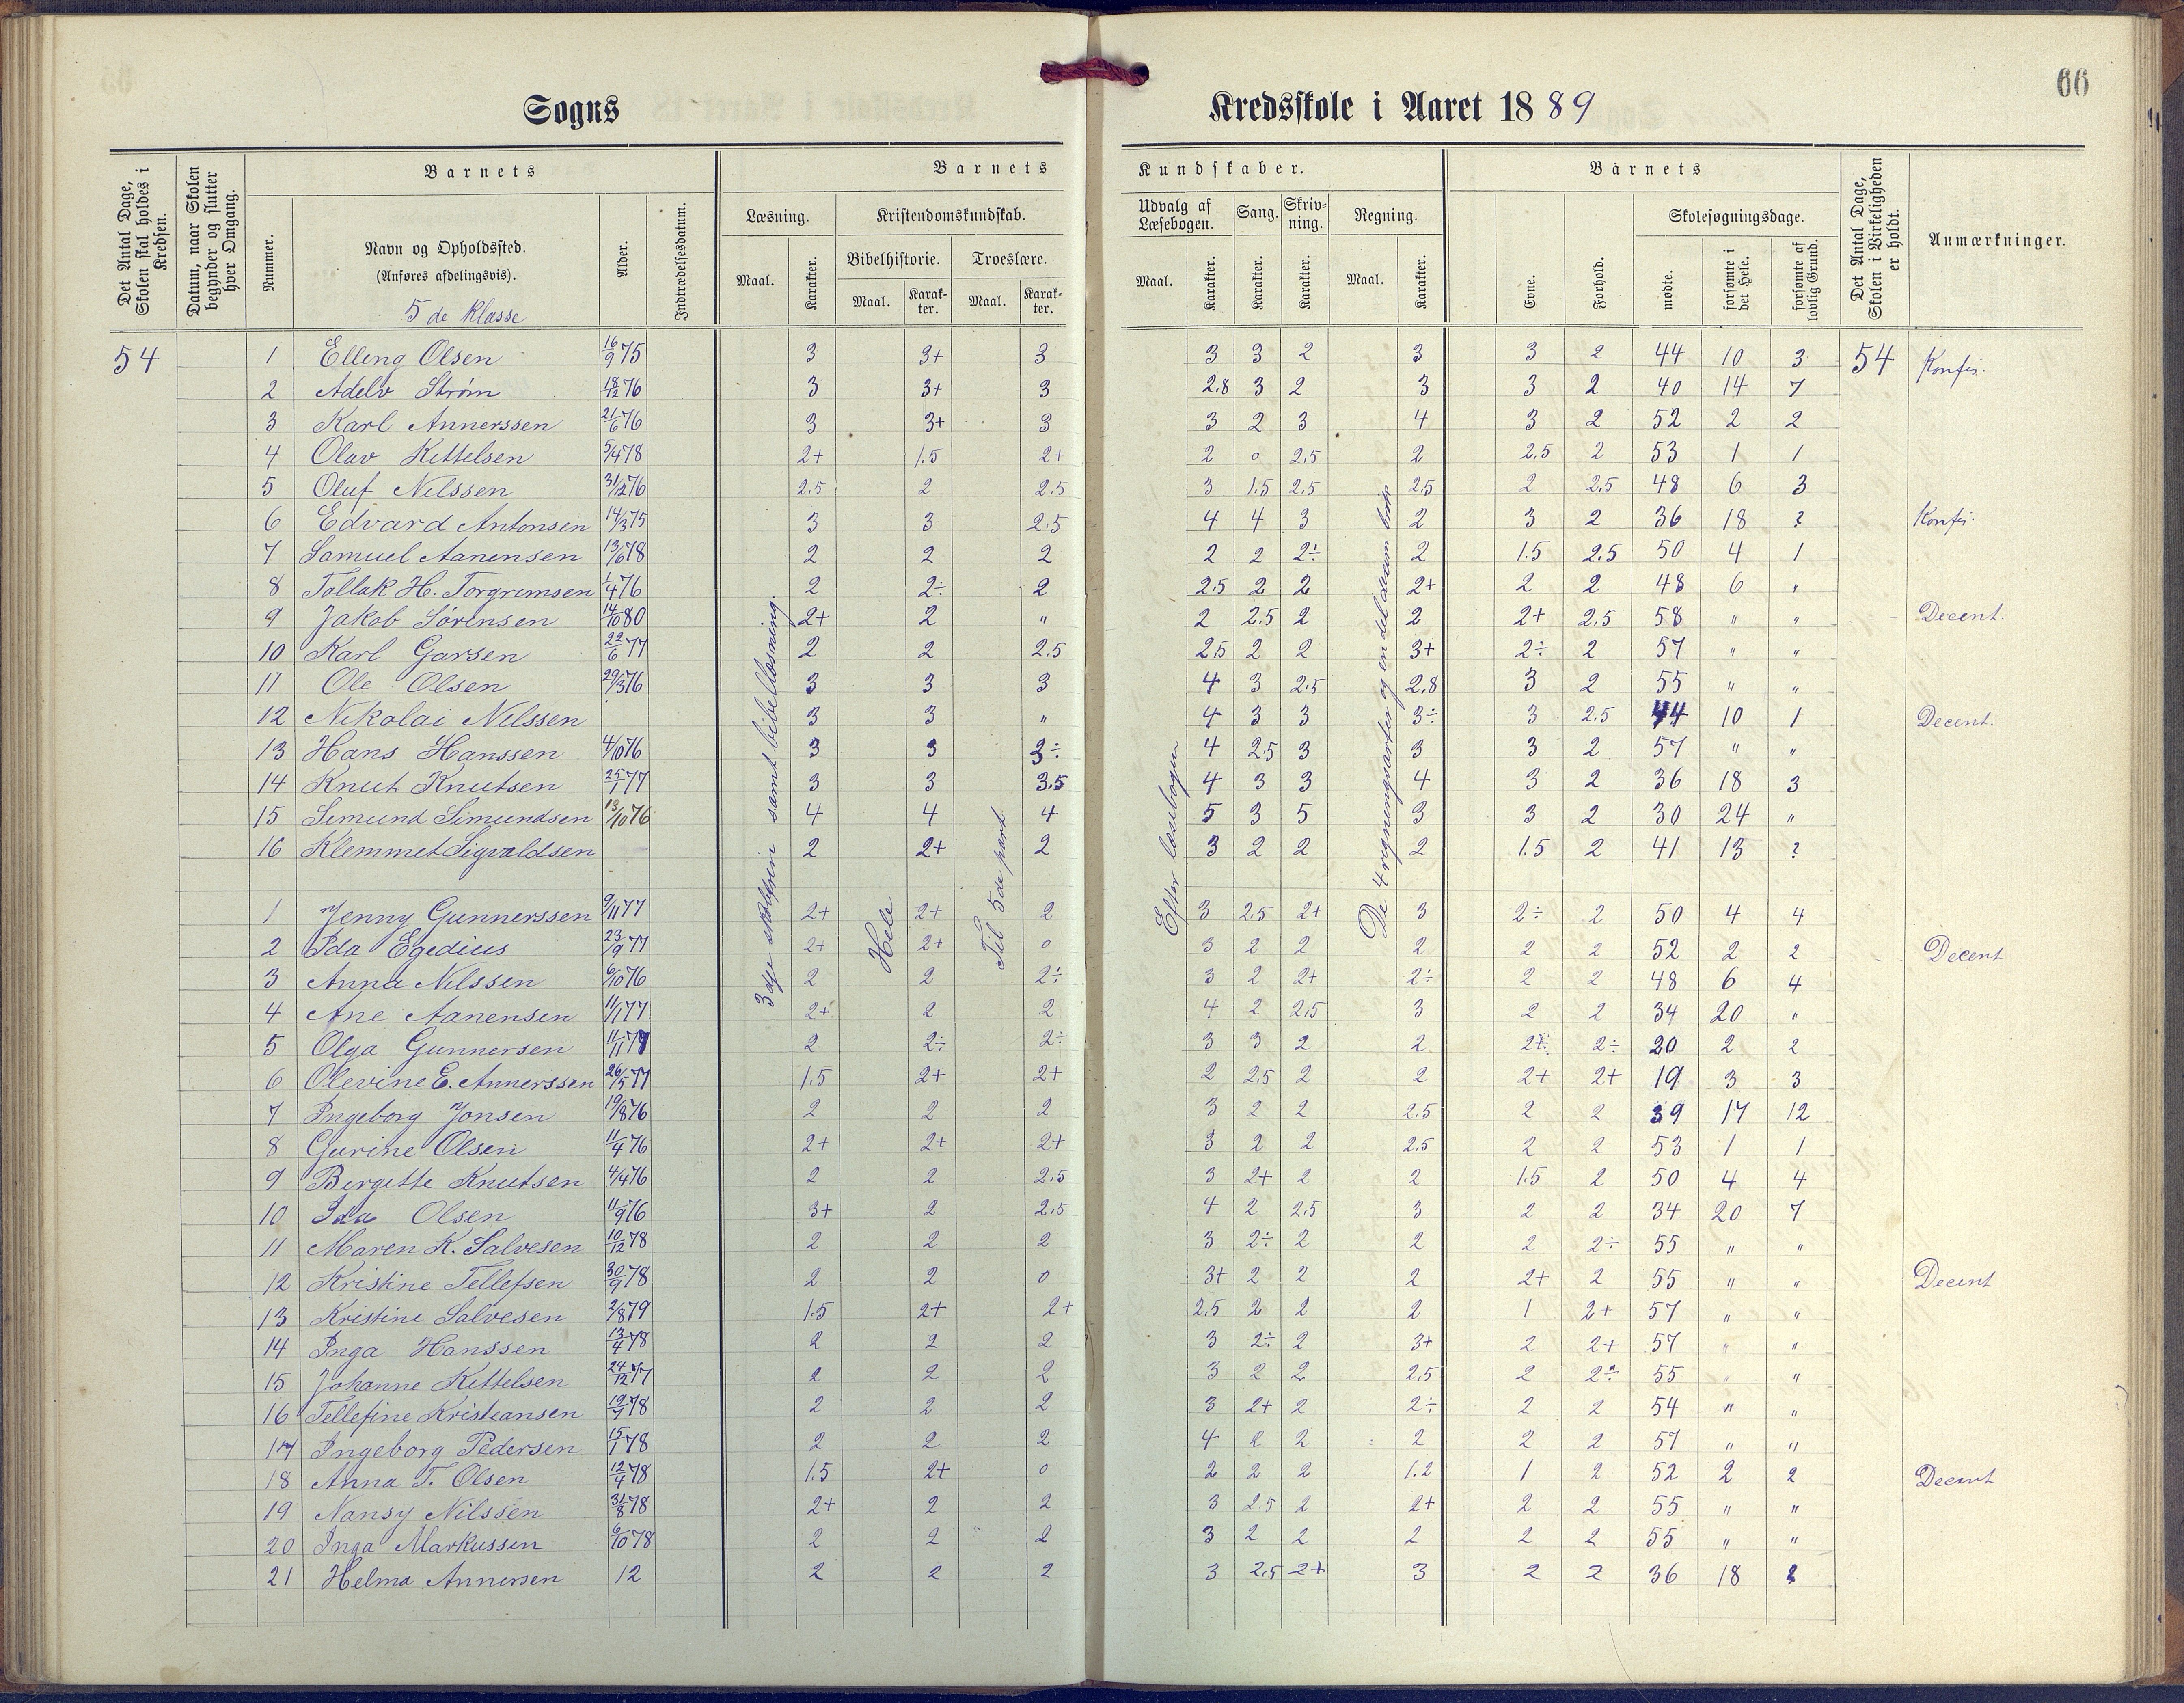 66
Sogns Kredsskole i Aaret 1889
Det Antal Dage, Skolen skal holdes i Kredsen.
Datum, naar Skolen begynder og slutter hver Omgang.
Barnets
Nummer.
Navn og Opholdssted.
(Anføres afdelingsvis).
5 de Klasse
Alder.
Indtrædelsesdatum.
Barnets Kundskaber.
Læsning.
Maal. Karakter.
Kristendomskundskab.
Bibelhistorie. Troeslære.
Maal. Karakter. Maal. Karakter.
Udvalg af Læsebogen.
Maal. Karakter.
Sang. Karakter.
Skrivning. Karakter.
Regning.
Maal. Karakter.
Barnets
Evne. Forhold.
Skolesøgningsdage.
mødte. forsømte i det Hele. forsømte af lovlig Grund.
Det Antal Dage, Skolen i Virkeligheden er holdt.
Anmærkninger.
54 1 Elling Olsen 16/9 75 3 3+ 3 3 3 2 3 3 2 44 10 3 54 Konfir.
2 Adelv Strøm 18/12 76 3 3+ 3 2.8 3 2 3 3 2 40 14 7
3 Karl Annerssen 21/6 76 3 3+ 3 3 2 3 4 3 2 52 2 2
4 Olav Kittelsen 5/4 78 2+ 1.5 2+ 2 0 2,5 2 2,5 2 53 1 1
5 Oluf Nilssen 31/12 76 2.5 2 2.5 3 1.5 2.5 2,5 2 2,5 48 6 3
6 Edvard Antonsen 14/3 75 3 3 2.5 4 4 3 2 3 2 36 18 ? Konfir.
7 Samuel Aanensen 13/6 78 2 2 2 2 2 2÷ 2 1.5 2.5 50 4 1
8 Tallak H. Torgrimsen 1/4 76 2 2÷ 2 2.5 2 2 2+ 2 2 48 6 "
9 Jakob Sørensen 14/10 80 2+ 2 " 2 2.5 2 2 2+ 2,5 58 " " Decent.
10 Karl Garsen 22/6 77 2 2 2.5 2,5 2 2 3+ 2÷ 2 57 " "
11 Ole Olsen 29/3 76 3 3 3 4 3 2.5 2,8 3 2 55 " "
12 Nikolai Nilssen 3 3 " 4 3 3 3÷ 3 2.5 44 10 1 Decent.
13 Hans Hanssen 4/10 76 3 3 3÷ 4 2.5 3 3 3 2 57 " "
14 Knut Knutsen 25/1 77 3 3 3.5 4 3 3 4 3 2 36 18 3
15 Simund Simundsen 13/10 76 4 4 4 5 3 5 3 3 2 30 24 "
16 Klemmet Sigvaldsen 2 2+ 2 3 2 2 2 1.5 2 41 13 ?
1 Jenny Gunnerssen 9/11 77 2+ 2+ 2 3 2.5 2+ 3 2÷ 2 50 4 4
2 Ida Egedius 23/9 77 2+ 2+ 0 3 2 2 2 2 2 52 2 2 Decent
3 Anna Nilssen 6/10 76 2 2 2÷ 3 2 2+ 2÷ 2 2 48 6 4
4 Ane Aanensen 11/1 77 2+ 2 2 4 2 2,5 3 2 2 34 20 "
5 Olga Gunnersen 11/11 78 2 2÷ 2÷ 3 3 2 2 2÷ 2÷ 20 2 2
6 Olevine E. Annerssen 26/5 77 1.5 2+ 2+ 2 2.5 2 2 2+ 2+ 19 3 3
7 Ingeborg Jonsen 19/8 76 2 2 2 3 2 2 2.5 2 2 39 17 12
8 Gurine Olsen 11/4 76 2+ 2+ 2+ 3 2 2 2.5 2 2 53 1 1
9 Birgitte Knutsen 4/4 76 2 2 2.5 3 2+ 2 2 1.5 2 50 4 4
10 Ida Olsen 11/9 76 3+ 2 2.5 4 2 2,5 3 2 2 34 20 7
11 Maren K. Salvesen 10/12 78 2 2 2 3 2÷ 2 2 2 2÷ 55 " "
12 Kristine Tellefsen 30/9 78 2 2 0 3+ 2 2 2 2+ 2 55 " " Decent
13 Kristine Salvesen 2/8 79 1.5 2+ 2+ 2,5 2 2 2 1 2+ 57 " "
14 Inga Hanssen 13/4 78 2 2 2 3 2÷ 2 3+ 2 2+ 57 " "
15 Johanne Kittelsen 24/12 77 2 2 2 3 2 2 2,5 2 2÷ 55 " "
16 Tellefine Kristiansen 19/7 78 2 2 2 3 2+ 2 2÷ 2 2 54 " "
17 Ingeborg Pedersen 15/1 78 2 2 2 4 2 2 2 2 2 57 " "
18 Anna T. Olsen 12/4 78 1.5 2+ 0 2 2 2 1.2 1 2 52 2 2 Decent
19 Nansy Nilssen 31/8 78 2+ 2 2 3 2.5 2 2+ 2 2 55 " "
20 Inga Markussen 6/10 78 2 2 2 3 2 2 2 2 2 55 " "
21 Helma Annersen 12 2 2 2 3 2,5 2+ 3 2 2 36 18 ?
3dje skoletrin samt bibellæsning.
Hele
Til 5de part
Efter læsebogen
De 4 regningsarter og en del alm brøk